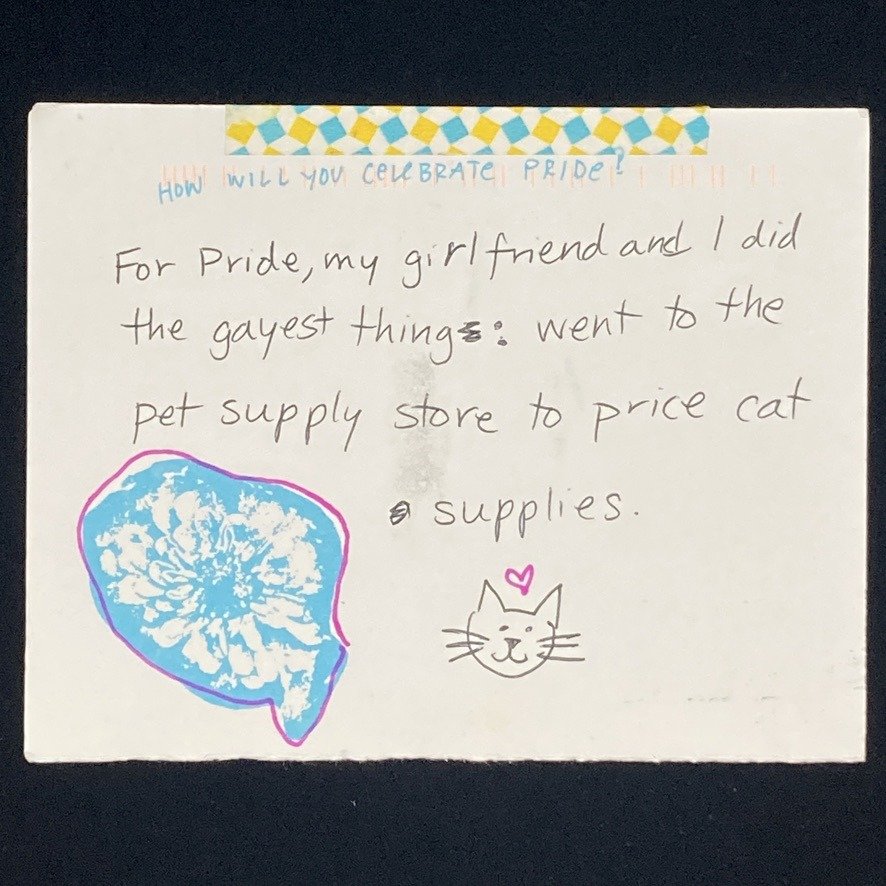 HOW WILL YOU CELEBRATE PRIDE?
For Pride, my girlfriend and I did
the gayest thing: went to the
pet supply store to price cat
supplies.